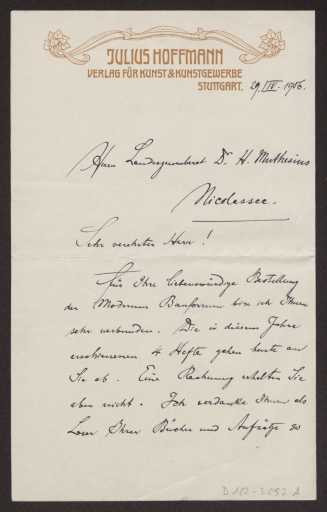 JULIUS HOFFMANN
VERLAG FÜR KUNST & KUNSTGEWERBE
STUTTGART. 29. IV. 1906.
Herrn Landesgewerberat Dr. H. Muthesius
Nicolassee.
Sehr verehrter Herr!
Für Ihre liebenswürdige Bestellung
der Modernen Bauformen bin ich Ihnen
sehr verbunden. Die in diesem Jahre
erschienenen 4 Hefte gehen heute an
Sie ab. Eine Rechnung erhalten Sie
aber nicht. Ich verdanke Ihnen als
Leser Ihrer Bücher und Aufsätze so